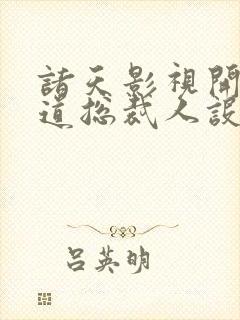 諸天影視開
道總裁人設
呂英明